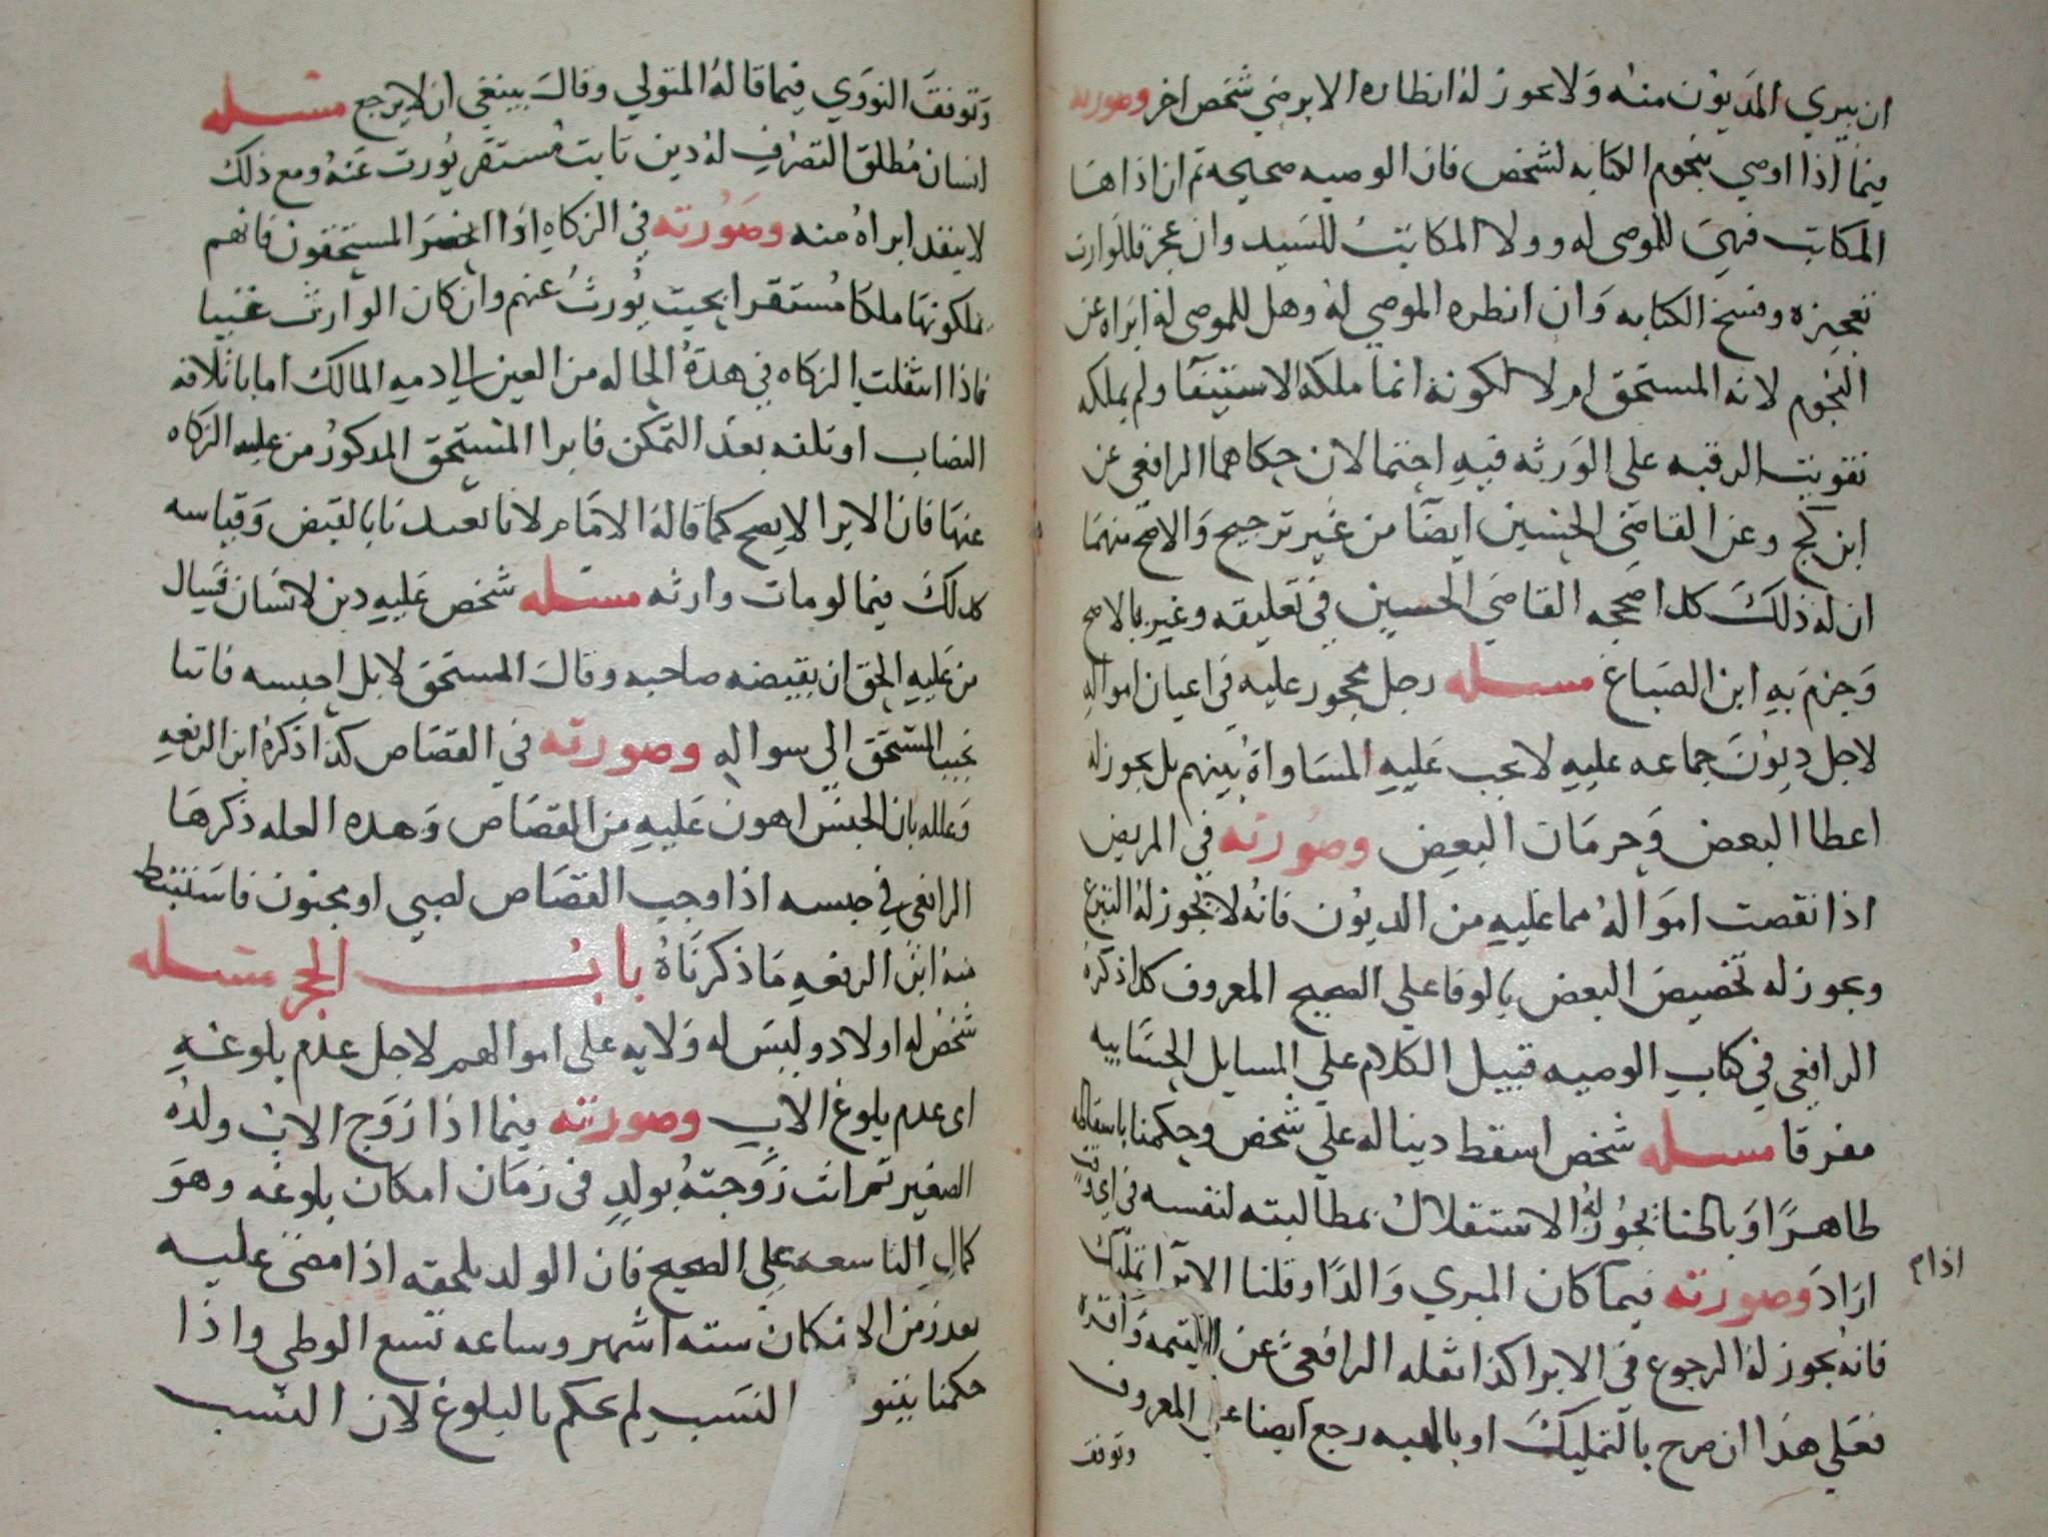 ان يبري المديون منه ولا يجوز له انظاره الا برضي شخص اخر وصورته
فيما اذا اوصي بنجوم الكتابه لشخص فان الوصيه صحيحه ثم ان اداها
المكاتب فهي للموصي له وولا المكاتب للسيد وان عجز فللوارث
تعجيزه وفسخ الكتابه وان انظره الموصي له وهل للموصي له ابراه عن
النجوم لانه المستحق ام لا لكونه انما ملكه الاستيفا ولم يملكه
تفويت الرقبه على الورثه فيه احتمالان حكاهما الرافعي عن
ابن كج وعن القاضي الحسين ايضا من غير ترجيح والاصح منهما
ان له ذلك كذا صححه القاضي الحسين في تعليقه وعبر بالاصح
وجزم به ابن الصباغ مسله رجل محجور عليه في اعيان امواله
لاجل ديون جماعه عليه لا يجب عليه المساواة بينهم بل يجوز له
اعطا البعض وحرمان البعض وصورته في المريض
اذا نقصت امواله مما عليه من الديون فانه لا يجوز له التبرع
ويجوز له تخصيص البعض بالوفا علي الصحيح المعروف كذا ذكره
الرافعي في كتاب الوصيه قبيل الكلام علي المسايل الحسابيه
مفرقا مسله شخص اسقط دينا له علي شخص وحكمنا باسقاطه
طاهرا وباطنا يجوز له الاستقلال بمطالبته لنفسه في اي وقت
اراد وصورته فيما كان المبري والدا وقلنا الابرا تمليك
اذا م
فانه يجوز له الرجوع في الابرا كذا نقله الرافعي عن التتمه واقره
فعلي هذا ان صرح بالتمليك او بالهبه رجع ايضا علي المعروف
وتوقف
وتوقف النووي فيما قاله المتولي وقال ينبغي ان لا يرجع مسله
انسان مطلق التصرف له دين ثابت مستقر يورث عنه ومع ذلك
لا ينفد ابراه منه وصورته في الزكاه اذا انحصر المستحقون فانهم
يملكونها ملكا مستقرا بحيث يورث عنهم وان كان الوارث غنيا
فاذا انتقلت الزكاه في هذه الحاله من العين الي دمه المالك اما باتلافه
النصاب او تلفه بعد التمكن فابرا المستحق المدكور من عليه الزكاه
عنها فان الابرا لا يصح كما قاله الامام لانا تعبدنا بالقبض وقياسه
كدلك فيما لو مات وارثه مسله شخص عليه دين لانسان فسال
من عليه الحق ان يقبضه صاحبه وقال المستحق لا بل احبسه فانا
نجيب المستحق الي سواله وصورته في القصاص كذا ذكره ابن الرفعه
وعلله بان الحبس اهون عليه من القصاص وهده العله ذكرها
الرافعي في حبسه اذا وجب القصاص لصبي او مجنون فاستنبط
منه ابن الرفعه ما ذكرناه باب الحجر مسله
شخص له اولاد وليس له ولايه على اموالهم لاجل عدم بلوغه
اى عدم بلوغ الاب وصورته فيما اذا زوج الاب ولده
الصغير ثم اتت زوجته بولد في زمان امكان بلوغه وهو
كمال التاسعه علي الصحيح فان الولد يلحقه اذا مضي عليه
بعد زمن الامكان سته اشهر وساعه تسع الوطي واذا
حكمنا بثبو النسب لم يحكم بالبلوغ لان النسب